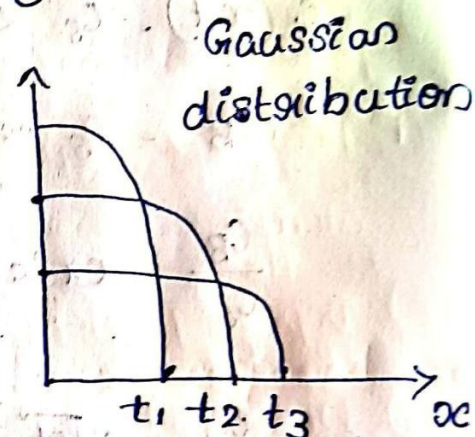 Gaussian
distribution
t1 t2 t3
x